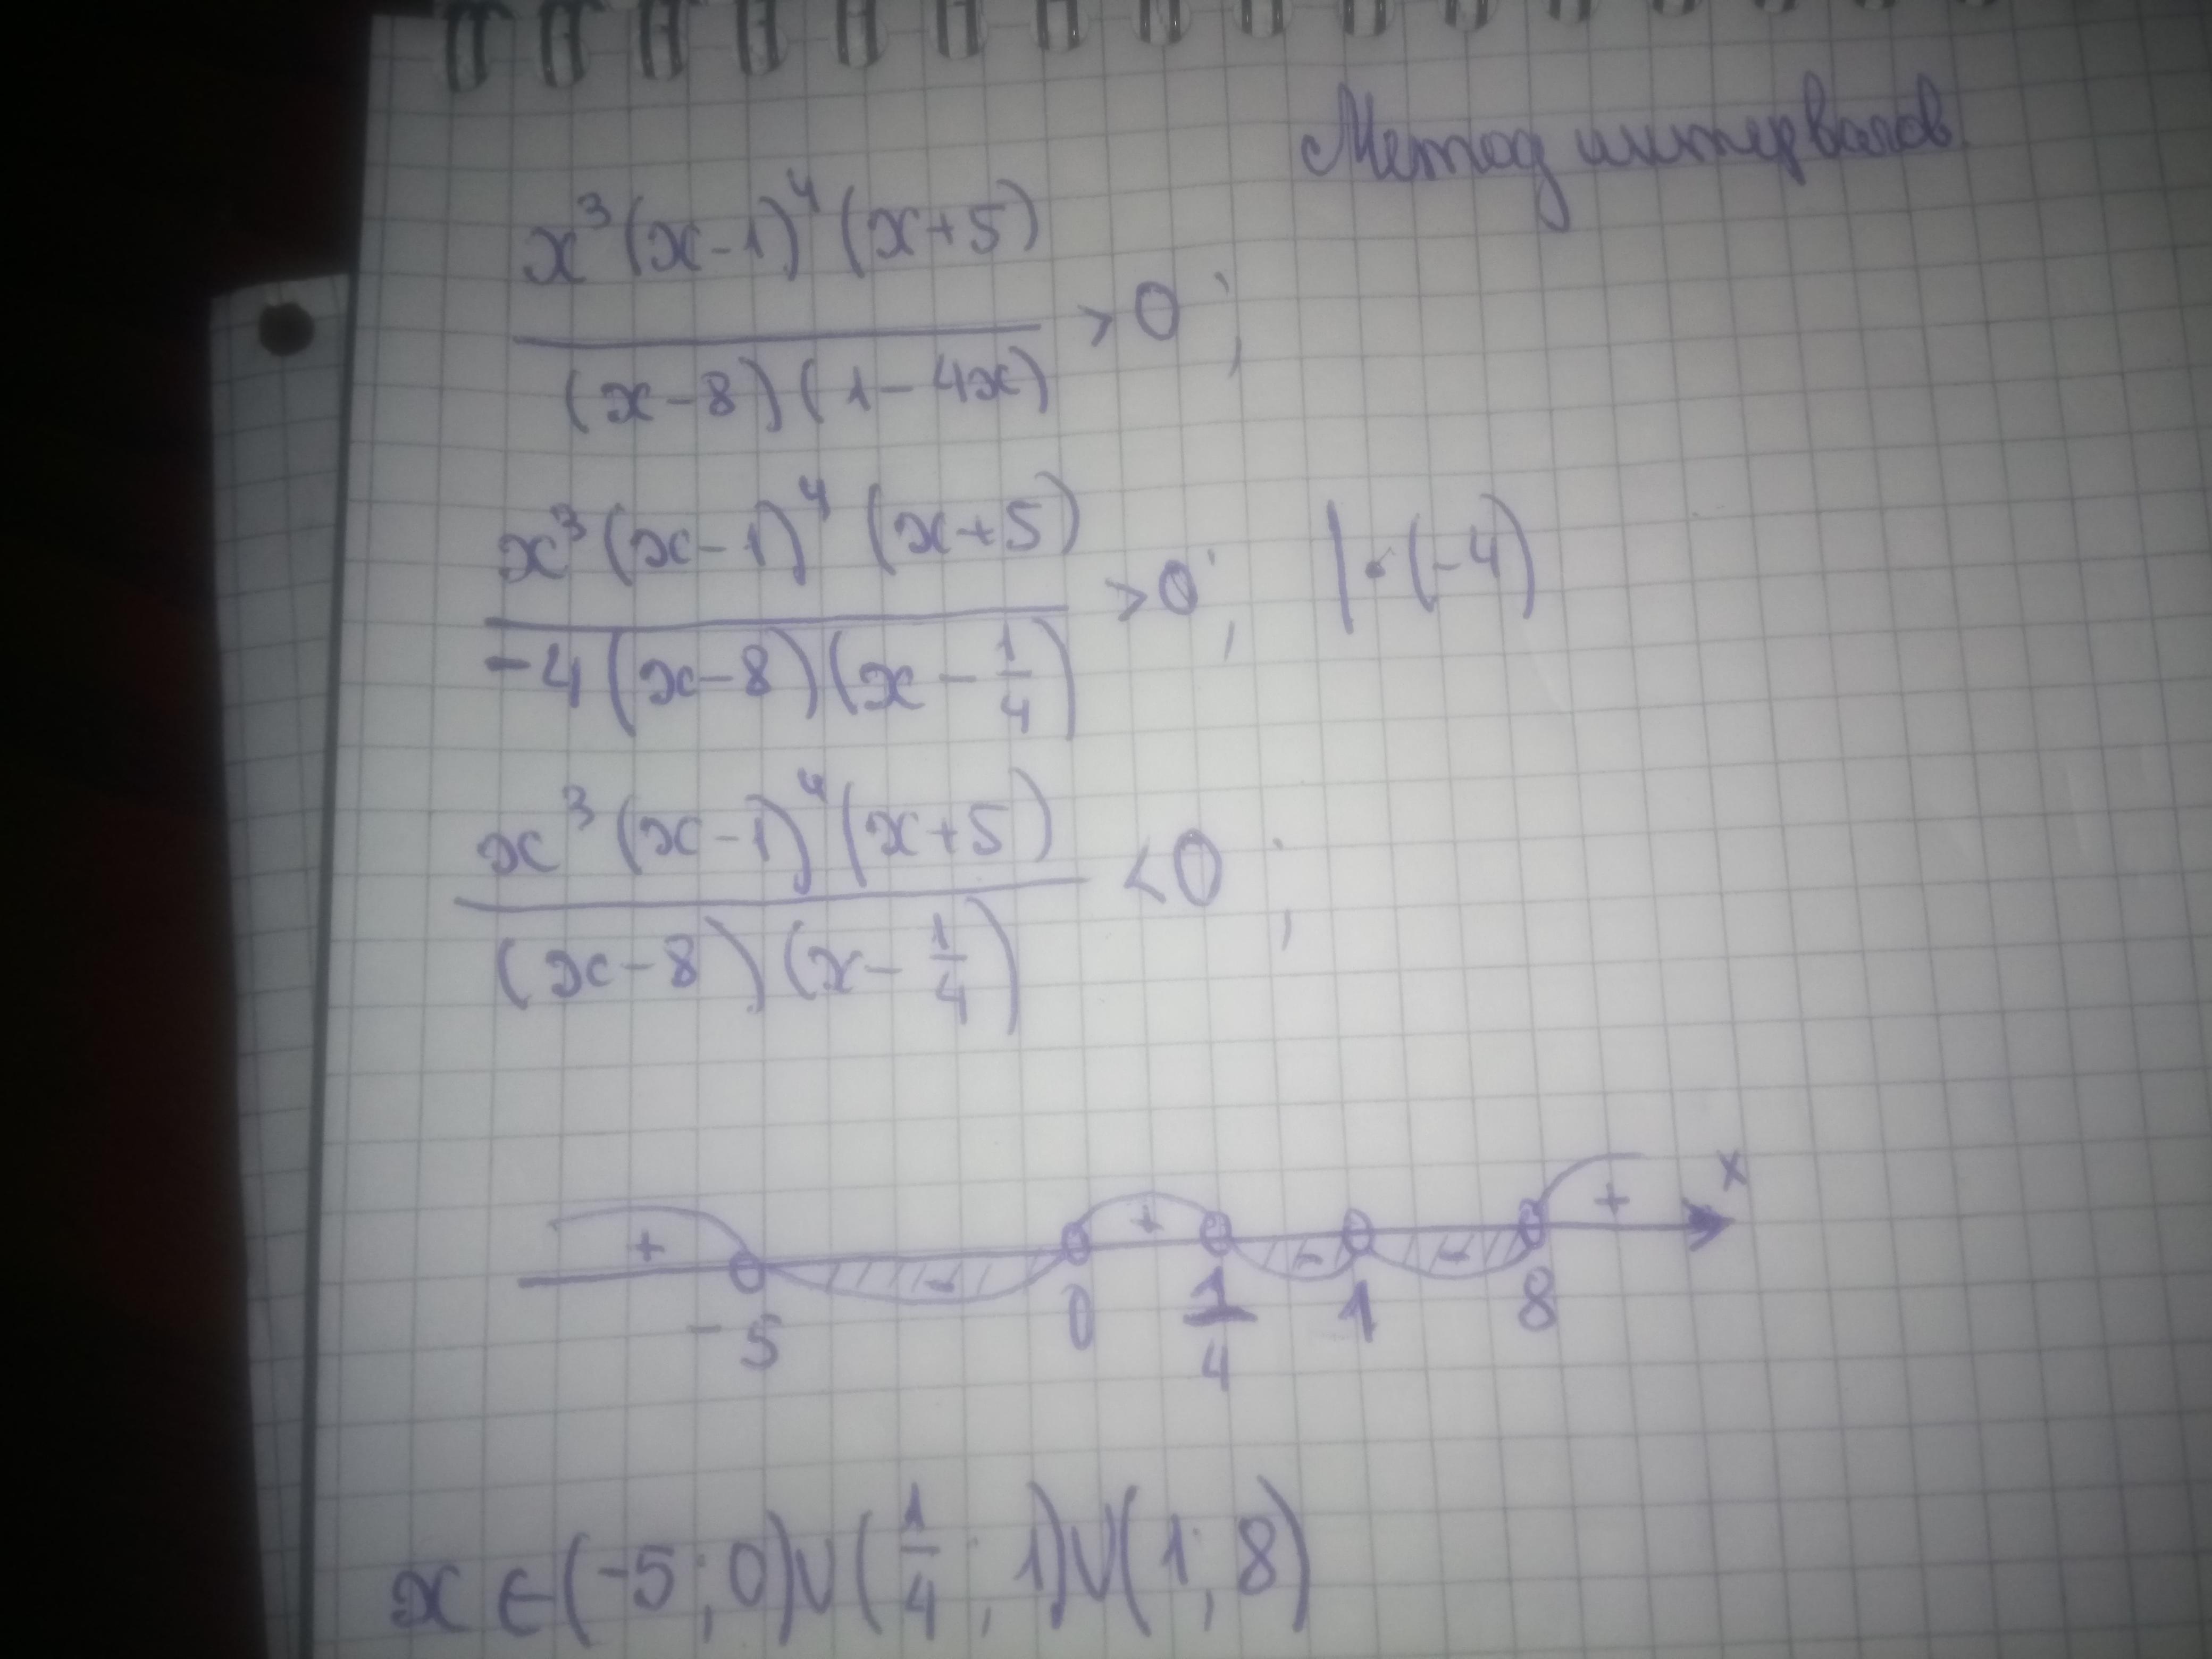 Метод интервалов
x³(x-1)⁴(x+5)
/ (x-8)(1-4x) > 0;
x³(x-1)⁴(x+5)
/ -4(x-8)(x-1/4) > 0; | · (-4)
x³(x-1)⁴(x+5)
/ (x-8)(x-1/4) < 0;
+ - + - - + x
-5 0 1/4 1 8
x ∈ (-5; 0) ∪ (1/4; 1) ∪ (1; 8)